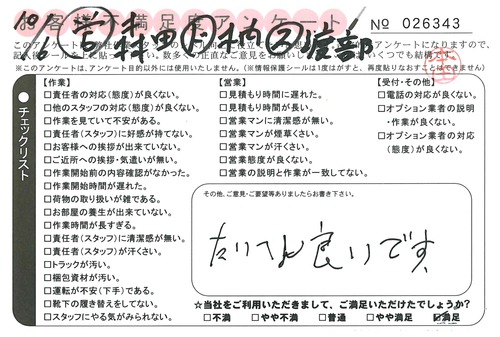 お客様満足度アンケート № 026343
10/8 営 森田 内 渡部
このアンケート
アンケートになりますので、
※このアンケートは、アンケート目的以外には使用いたしません。（※情報保護シールは1度はがすと、再度貼りなおすことはできません）
●チェックリスト
【作業】
□責任者の対応（態度）が良くない。
□他のスタッフの対応（態度）が良くない。
□作業を見ていて不安がある。
□責任者（スタッフ）に好感が持てない。
□お客様への挨拶が出来ていない。
□ご近所への挨拶・気遣いが無い。
□作業開始前の内容確認がなかった。
□作業開始時間が遅れた。
□荷物の取り扱いが雑である。
□お部屋の養生が出来ていない。
□作業時間が長すぎる。
□責任者（スタッフ）に清潔感が無い。
□責任者（スタッフ）が汗くさい。
□トラックが汚い。
□梱包資材が汚い。
□運転が不安（下手）である。
□靴下の履き替えをしてない。
□スタッフにやる気がみられない。
【営業】
□見積もり時間に遅れた。
□見積もり時間が長い。
□営業マンに清潔感が無い。
□営業マンが煙草くさい。
□営業マンが汗くさい。
□営業態度が良くない。
□営業の説明と作業が一致してない。
【受付・その他】
□電話の対応が良くない。
□オプション業者の説明
・作業が良くない。
□オプション業者の対応
（態度）が良くない。
その他、ご意見・ご要望等ありましたらお書き下さい。
たいへん良いです
☆当社をご利用いただきまして、ご満足いただけたでしょうか？
□不満 □やや不満 □普通 □やや満足 ☑満足